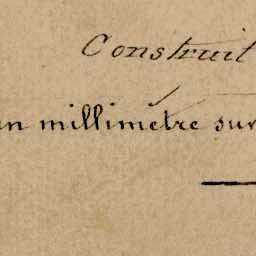 Construit
un millimètre sur